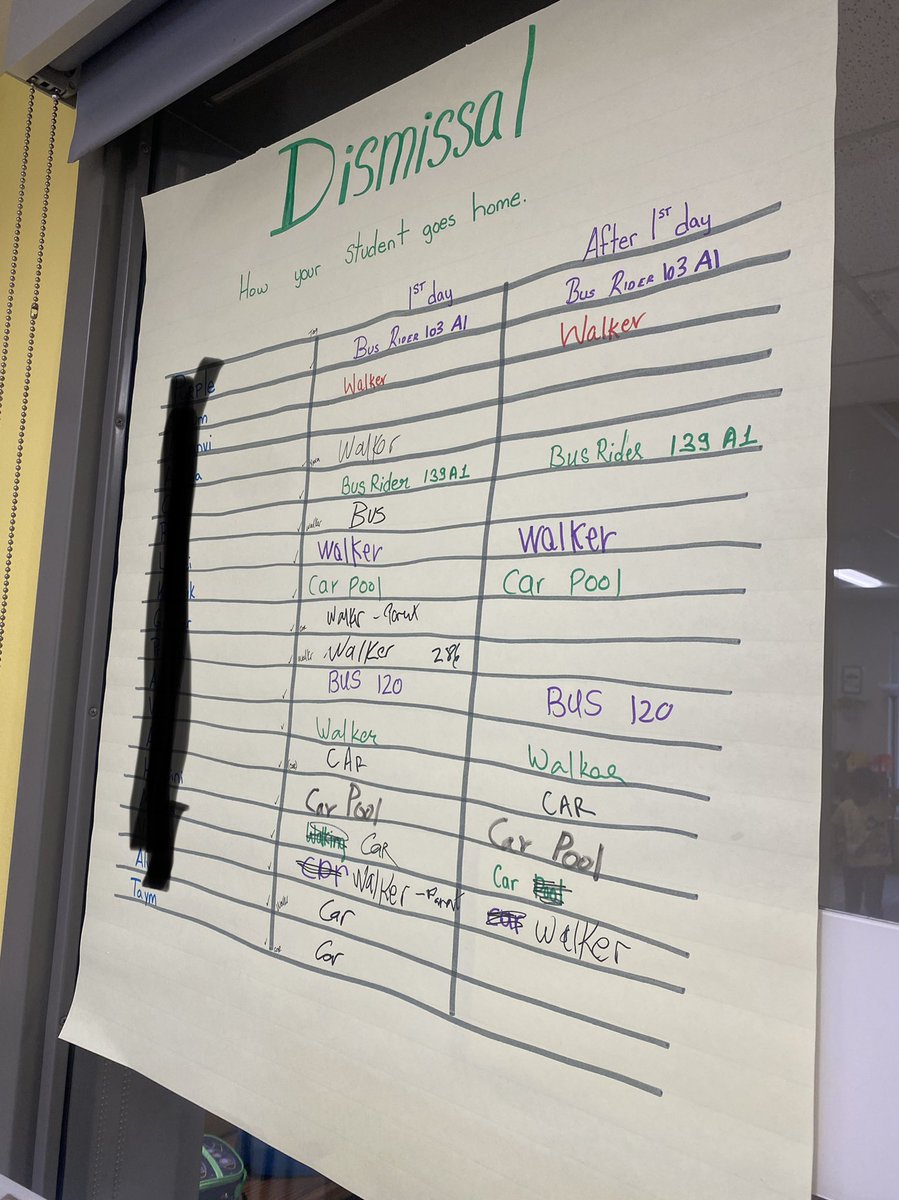 Dismissal
How your student goes home.
1ST day After 1ST day
Bus Rider 103 A1 Bus Rider 103 A1
Walker Walker
Walker
Bus Rider 139 A1 Bus Rider 139 A1
Bus
Walker Walker
Car Pool Car Pool
Walker -
Walker 286
BUS 120 BUS 120
Walker Walker
CAR CAR
Car Pool Car Pool
Walking Car Car Pool
car Walker - car Walker
Car
Taym Car